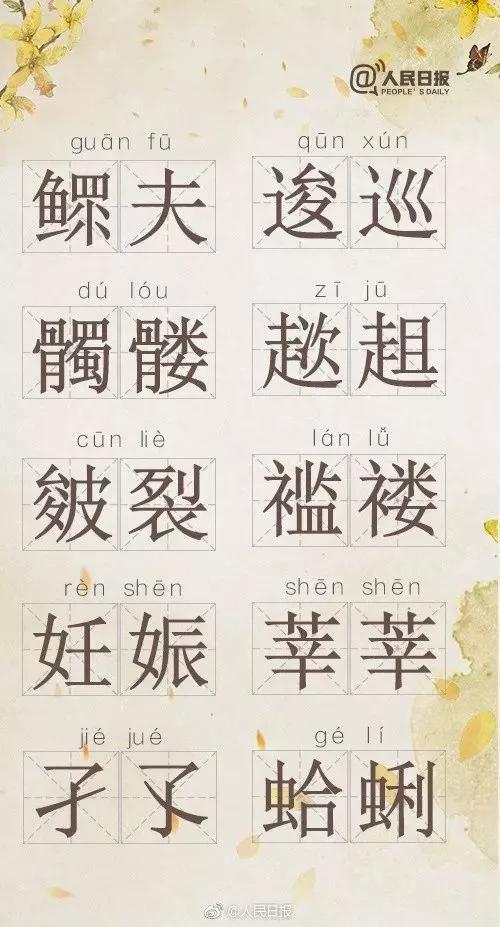 @人民日报
PEOPLE'S DAILY
guān fū
鳏夫
qūn xún
逡巡
dú lóu
髑髅
zī jū
趑趄
cūn liè
皴裂
lán lǚ
褴褛
rèn shēn
妊娠
shēn shēn
莘莘
jié jué
孑孓
gé lí
蛤蜊
@人民日报